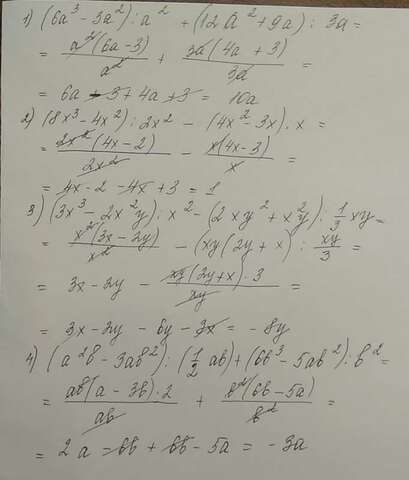 1) (6a³ - 3a²) : a² + (12a² + 9a) : 3a =
= a²(6a-3)/a² + 3a(4a + 3)/3a =
= 6a - 3 + 4a + 3 = 10a
2) (8x³ - 4x²) : 2x² - (4x² - 3x) . x =
= 2x²(4x - 2)/2x² - x(4x - 3)/x =
= 4x - 2 - 4x + 3 = 1
3) (3x³ - 2x²y) : x² - (2xy² + x²y) : 1/3 xy =
= x²(3x - 2y)/x² - (xy(2y + x) : xy/3 =
= 3x - 2y - xy(2y + x) · 3/xy =
= 3x - 2y - 6y - 3x = - 8y
4) (a²b - 3ab²) : (1/2 ab) + (6b³ - 5ab²) : b² =
= ab(a - 3b) : 2/ab + b²(6b - 5a)/b² =
= 2a - 6b + 6b - 5a = - 3a